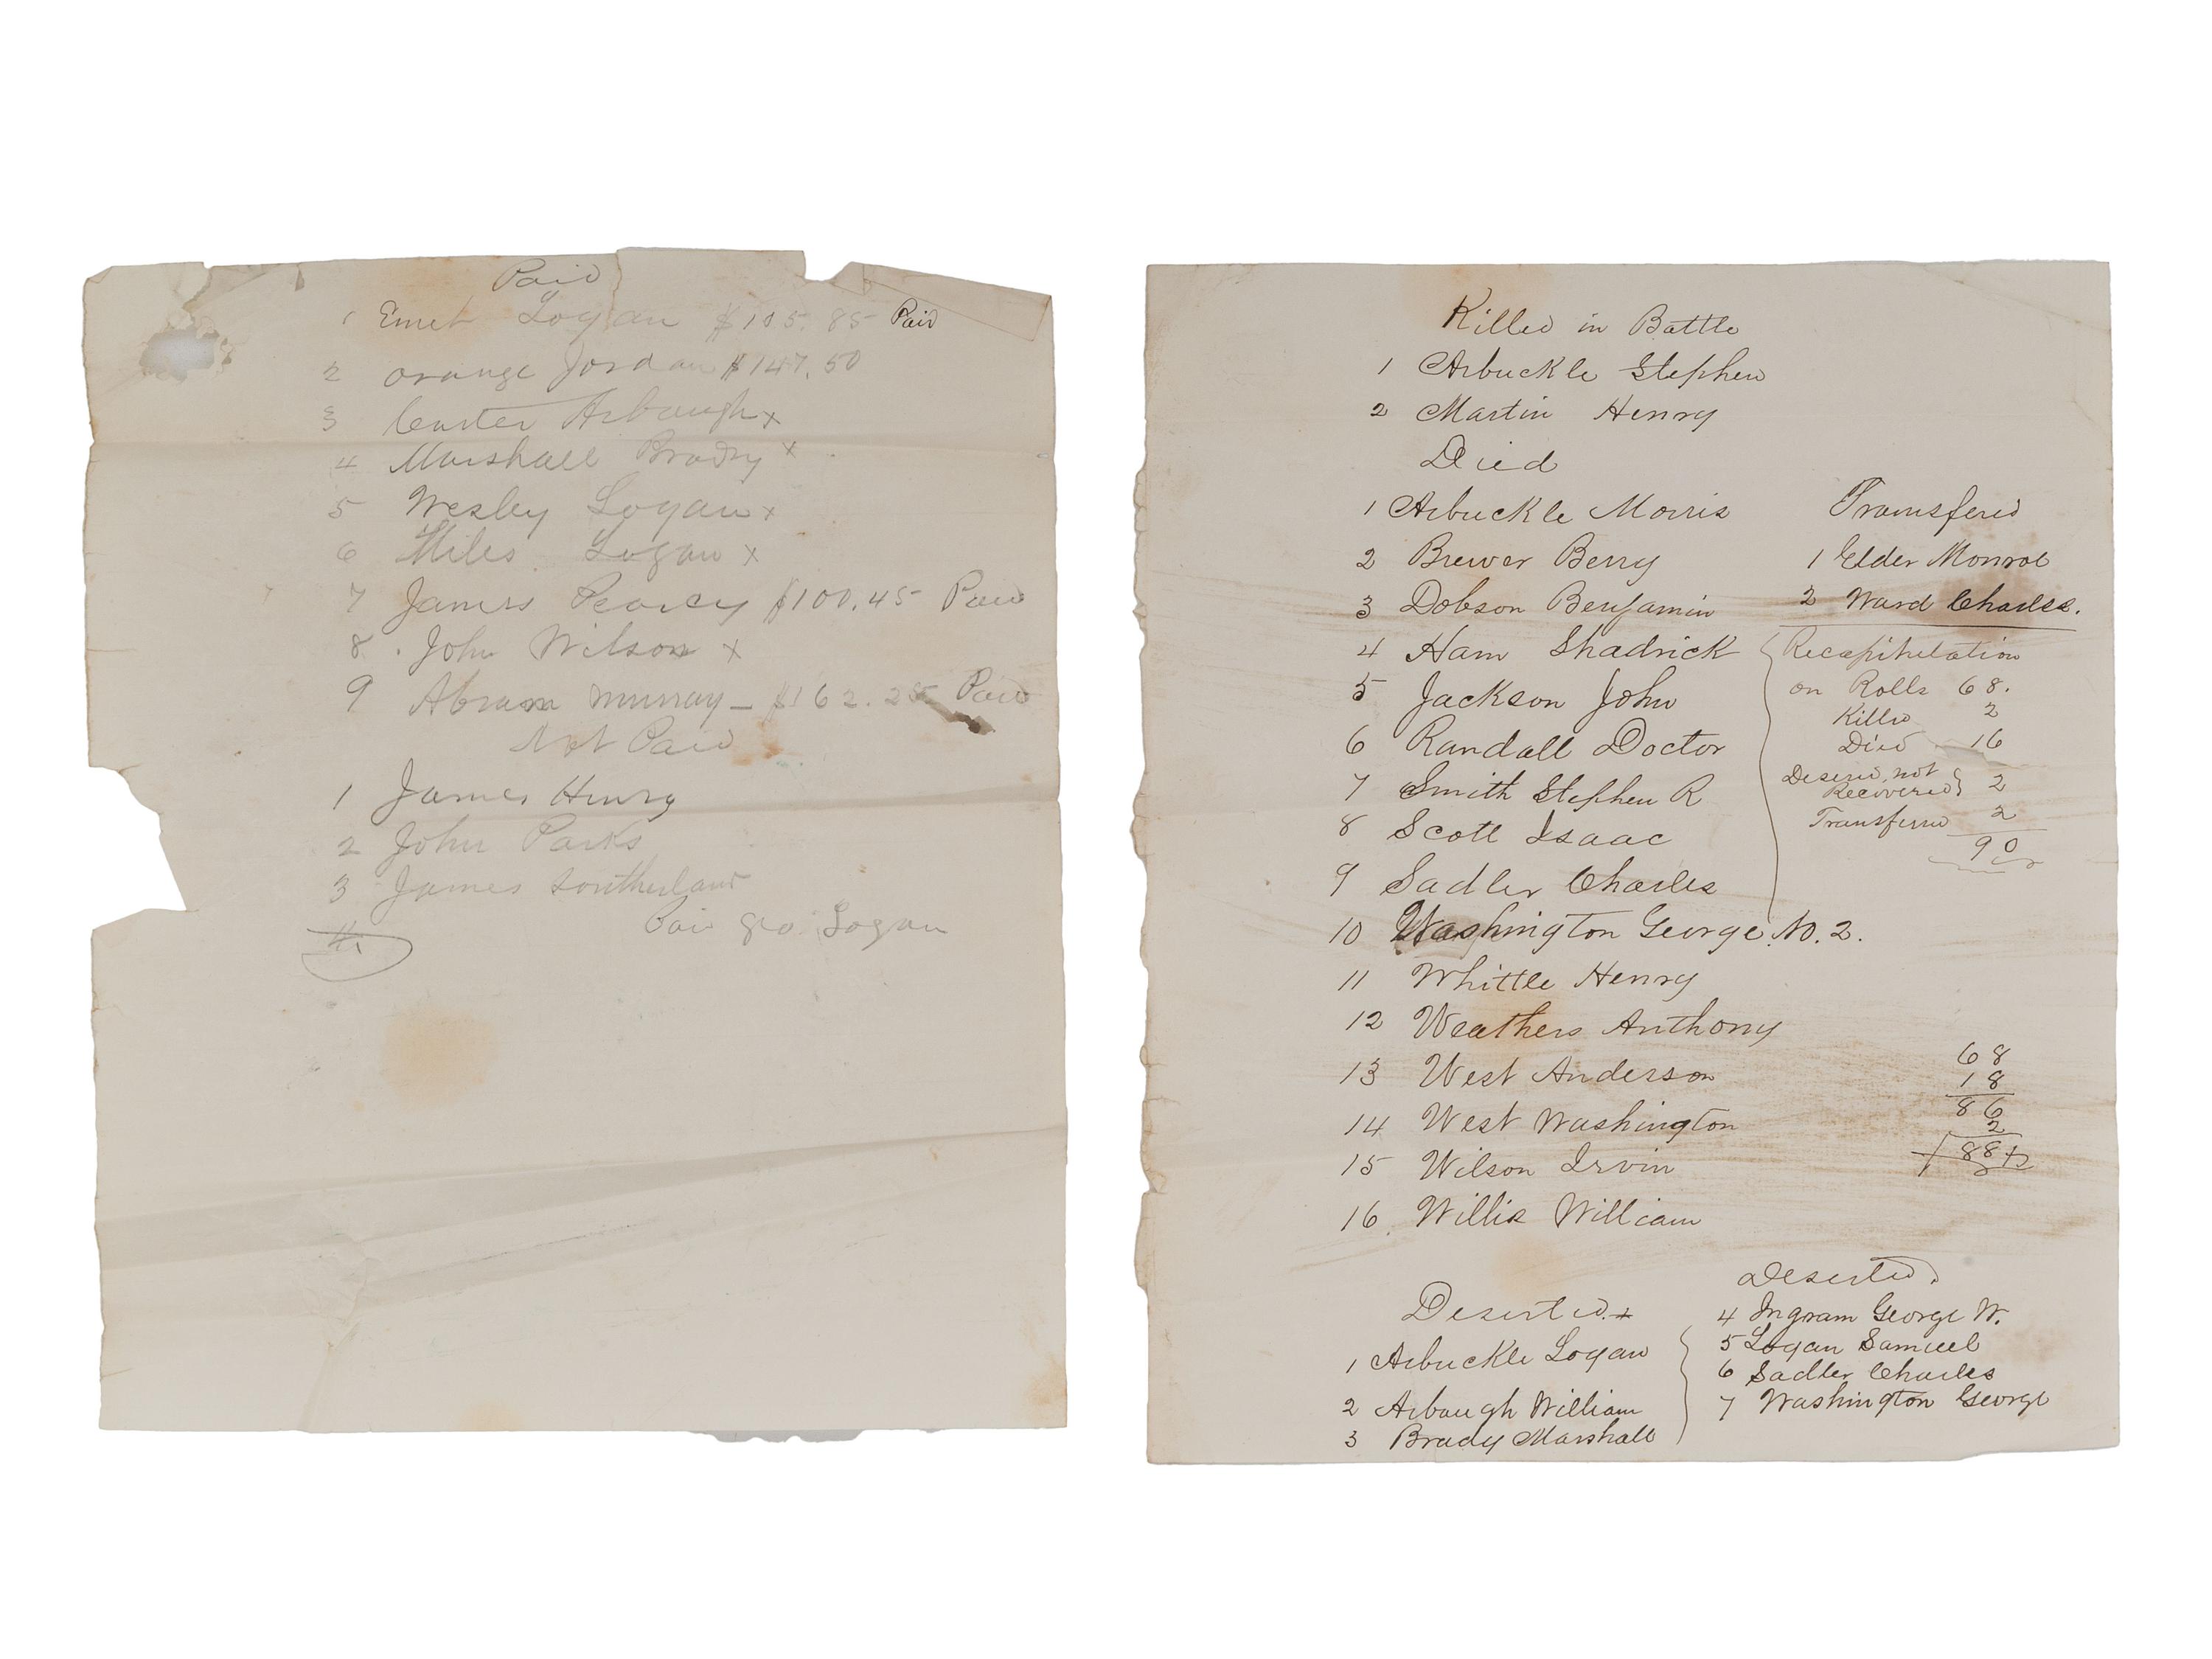 Paid
1 Emet Logan $105.85 Paid
2 orange Jordan $147.50
3 Carter Arbaugh x
4 Marshall Brady x
5 Wesley Logan x
6 Miles Logan x
7 James Pearcy $100.45 Paid
8 John Wilson x
9 Abram Murray — $162.25 Paid
Not Paid
1 James Henry
2 John Parks
3 James Southerland
4
Paid Geo. Logan
Killed in Battle
1 Arbuckle Stephen
2 Martin Henry
Died
1 Arbuckle Morris
2 Brewer Berry
3 Dobson Benjamin
4 Ham Shadrick
5 Jackson John
6 Randall Doctor
7 Smith Stephen R
8 Scott Isaac
9 Sadler Charles
10 Washington George No. 2.
11 Whittle Henry
12 Weathers Anthony
13 West Anderson
14 West Washington
15 Wilson Irvin
16 Willis William
Transfered
1 Elder Monroe
2 Ward Charles.
Recapitulation
on Rolls 68.
Killed 2
Died 16
Deserd, not
Recovered } 2
Transferred 2
90
68
18
86
2
88
Deserted. +
1 Arbuckle Logan
2 Arbaugh William
3 Brady Marshall
Deserted.
4 Ingram George W.
5 Logan Samuel
6 Sadler Charles
7 Washington George